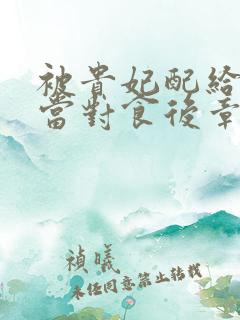 被貴妃配給
當對食後章
禎曦
未經同意禁止轉載